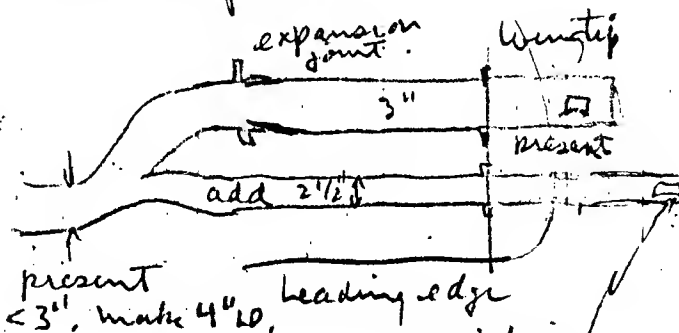 expansion
joint.
Wingtip
3"
present
add 2 1/2"
present
< 3", make 4" ID,
Leading edge